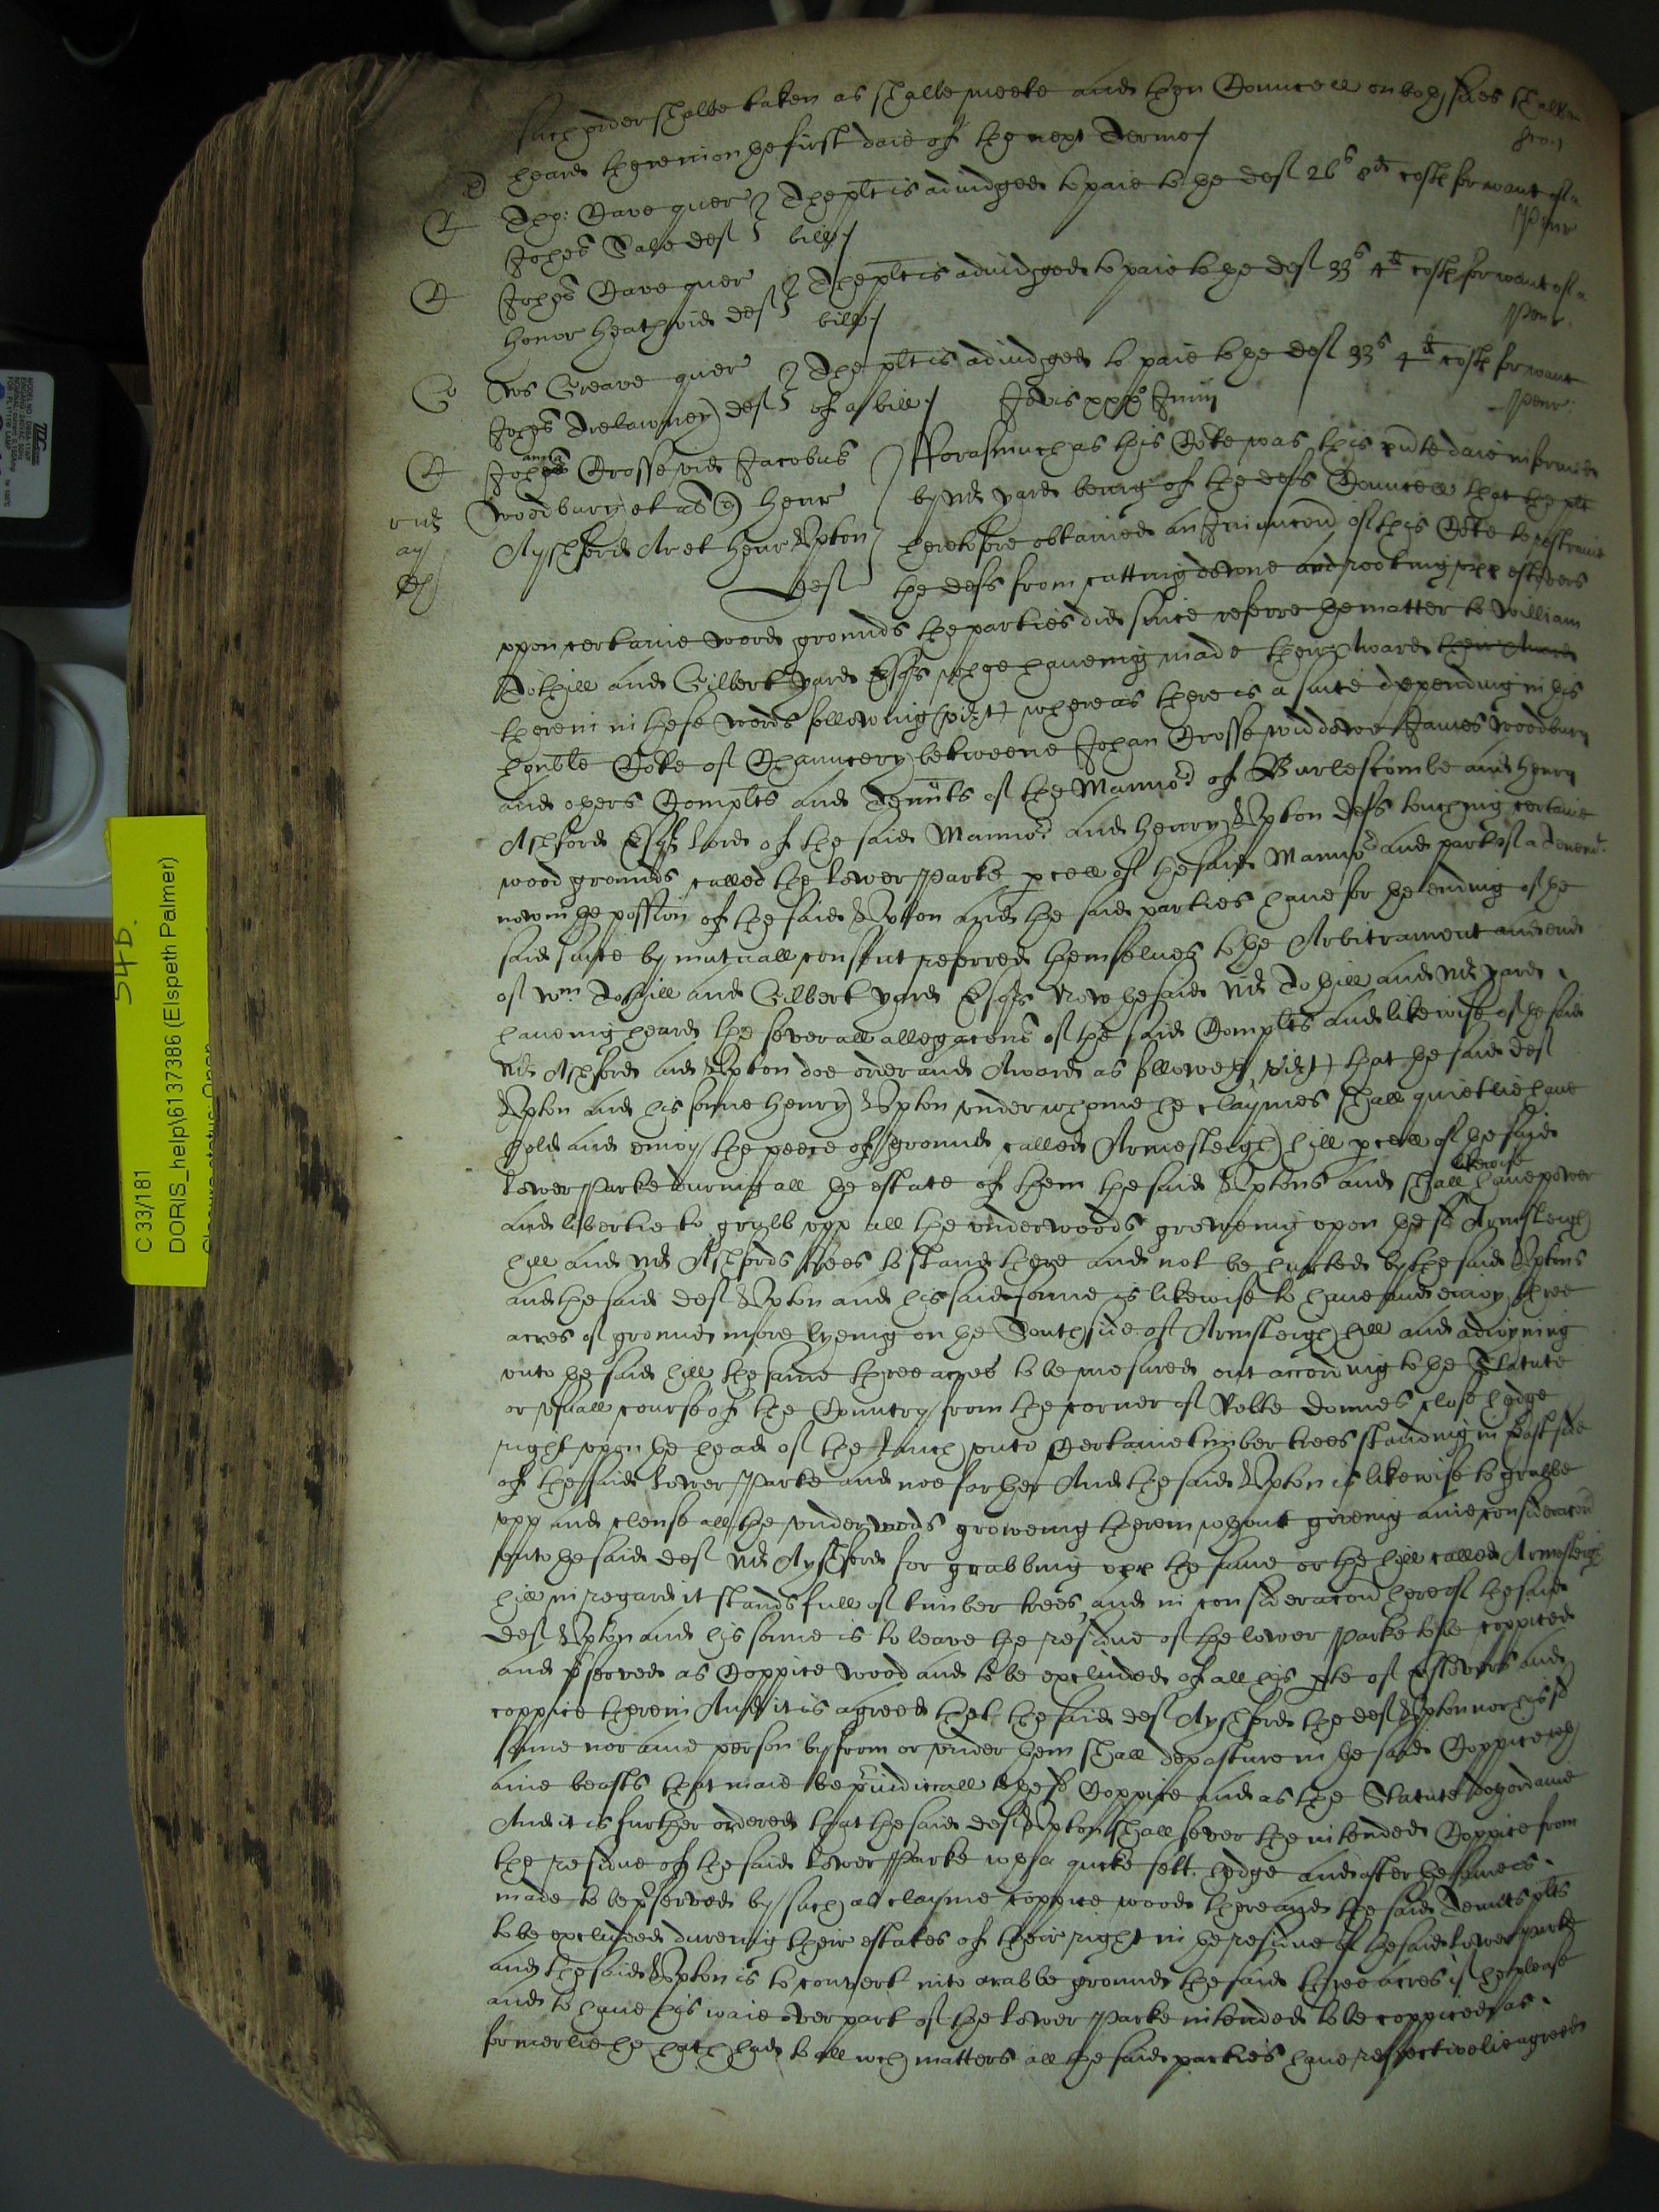 such order shalbe taken as shalbe meete and then Councell on both sides shalbe
heard therein on the first daie of the next Terme
Tho: Cave quer The plt is adiudged to paie to the deft 26s 8d costs for want of a
Johes Sale deft bill
Johes Cave quer The plt is adiudged to paie to the deft 33s 4d costs for want of a
Honor Heath vid deft bill
Ws Greave quer The plt is adiudged to paie to the deft 33s 4d costs for want
Johes Trelawney deft of a bill
Jovis Junij
Johanna Crosse vid Jacobus Forasmuch as this Cote was this pnte daie informed
Woodbury et al q Henr by Mr Yard being of the defts Councell that the plt
Ayshford Ar et Henr Upton heretofore obtained an Iniunccon of this Cote to restraine
deft the defts from cutting downe and rooting upp estovers
uppon certaine wood grounds the parties did since referre the matter to William
Tothill and Gilbert Yard Esqs whoe haveing made their Award
therein in these words following (vizt) whereas there is a suite depending in this
honble Cote of Chauncery betweene Johan Crosse widdowe James Woodbury
and others Complts and Tennts of the Mannor of Burlescombe and Henry
Ashford Esqr Lord of the said Mannor and Henry Upton defts touching certaine
wood grounds called the Lower Parke pcell of the said Mannor and part of a Tenemt
now in the possion of the said Upton and the said parties have for the ending of the
said suite by mutuall consent referred themselves to the Arbitrament and end
of Wm Tothill and Gilbert Yard Esqs Now the said Mr Tothill and Mr Yard
haveing heard the severall allegacons of the said Complts and likewise of the said
Mr Ashford and Upton doe order and Award as followeth vizt that the said deft
Upton and his sonne Henry Upton under whome he claymes shall quietlie have
hold and enioy the peece of ground called Armesleigh hill pcell of the said
Lower Parke during all the estate of them the said Uptons and shall likewise have power
and libertie to grubb upp all the underwoods groweing upon the sd Armsleigh
hill and Mr Ashfords trees to stand there and not be hurted by the said Uptons
and the said deft Upton and his said sonne is likewise to have and enioy three
acres of ground more lyeing on the South side of Armsleigh hill and adioyning
unto the said hill the same three acres to be mesured out according to the Statute
or usuall course of the Country from the corner of Robte Donnes close hedge
right upon the head of the Linch unto Certaine timber trees standing in East side
of the said Lower Parke and noe farther And the said Upton is likewise to grubbe
upp and clense all the underwoods groweing therein without giveing anie consideracon
unto the said deft Mr Ayshford for grubbing upp the same or the hill called Armsleigh
hill in regard it stands full of timber trees, and in consideracon hereof the said
deft Upton and his sonne is to leave the residue of the lower Parke to be coppiced
and pserved as Coppice wood and to be excluded of all his pte of estovers and
coppice therein And it is agreed that the said deft Ayshford the deft Upton nor his sd
sonne nor anie person by from or under them shall depasture in the said Coppice with
anie beasts that maie be preiudiciall to the sd Coppice and as the Statute doth ordaine
And it is further ordered that the said deft Upton shall sever the intended Coppice from
the residue of the said Lower Parke with a quicke sett hedge and after the same is
made to be pserved by such as clayme coppice wood there and the said Tennts plts
to be excluded dureing their estates of their right in the residue of the said Lower Parke
and the said Upton is to convert into arable ground the said three acres if he please
and to have his waie over part of the Lower Parke intended to be coppiced as
formerlie he hath had to all wch matters all the said parties have respectivelie agreed
54D.
C 33/181
DORIS_help\6137386 (Elspeth Palmer)